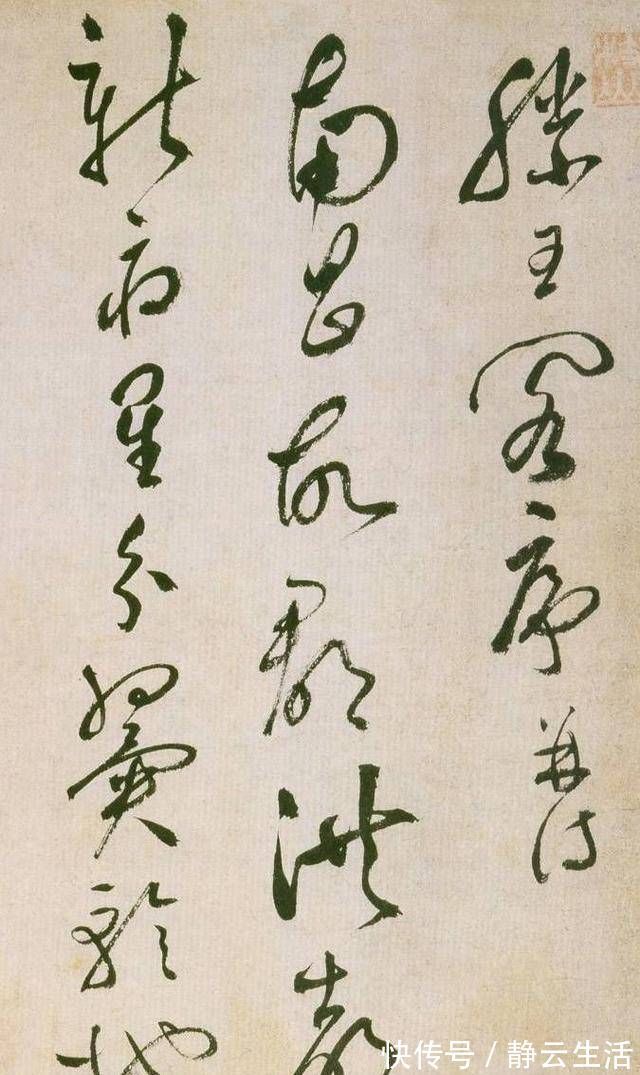 滕王閣序并詩
南昌故郡洪都
新府星分翼軫地
快传号 / 静云生活